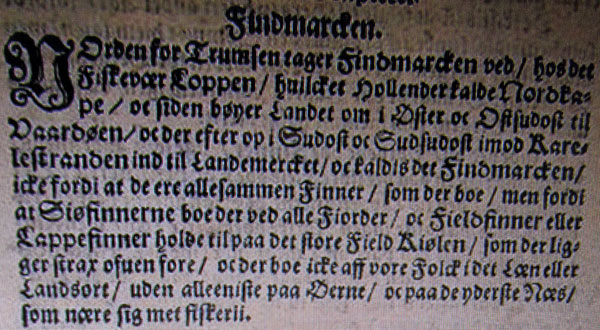 Findmarcken.
NOrden for Trumsen tager Findmarcken ved / hos det
Fiskevær Loppen / huilcket Hollender kalde Nordka-
pe / oc siden bøyer Landet om i Øster oc Ostsudost til
Vaardøen / oc der efter op i Sudost oc Sudsudost imod Kare-
lestranden ind til Landemercket / oc kaldis det Findmarcken /
icke fordi at de ere allesammen Finner / som der boe / men fordi
at Siøfinnerne boe der ved alle Fiorder / oc Fieldfinner eller
Lappefinner holde til paa det store Field Kiølen / som der lig-
ger strax ofuen fore / oc der boe icke aff vore Folck i det Læn eller
Landsort / uden alleeniste paa Øerne / oc paa de yderste Næs /
som nære sig met fiskerii.